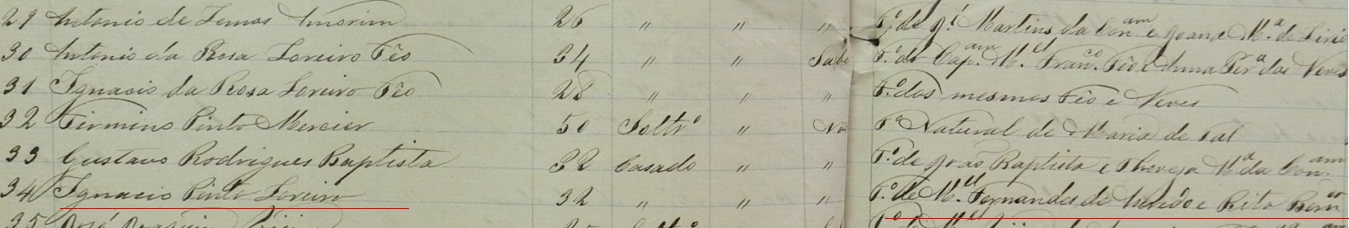 29 Antonio de Lemos Amorim 26 " " " F.º de J.é Martins da Con.am e Joana M.ª de
30 Antonio da Rosa Loreiro Fêo 34 " " Sabe F.º do Cap.am M.el Fran.co Fêo e Anna Per.ª das Neves
31 Ignacio da Rosa Loreiro Fêo 28 " " " F.º dos mesmos Fêo e Neves
32 Firmino Pinto Mercier 50 Soltr.º " Não F.º Natural de Maria de Tal
33 Gustavo Rodrigues Baptista 32 Casado " " F.º de João Baptista e Thereza M.ª da Con.am
34 Ignacio Pinto Loreiro 32 " " " F.º de M.el Fernandes de e Rita
35 José Joaquim